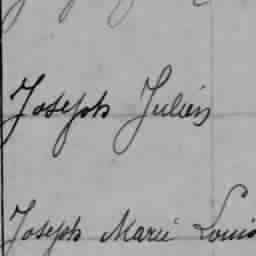 Joseph Julien
Joseph Marie Louis